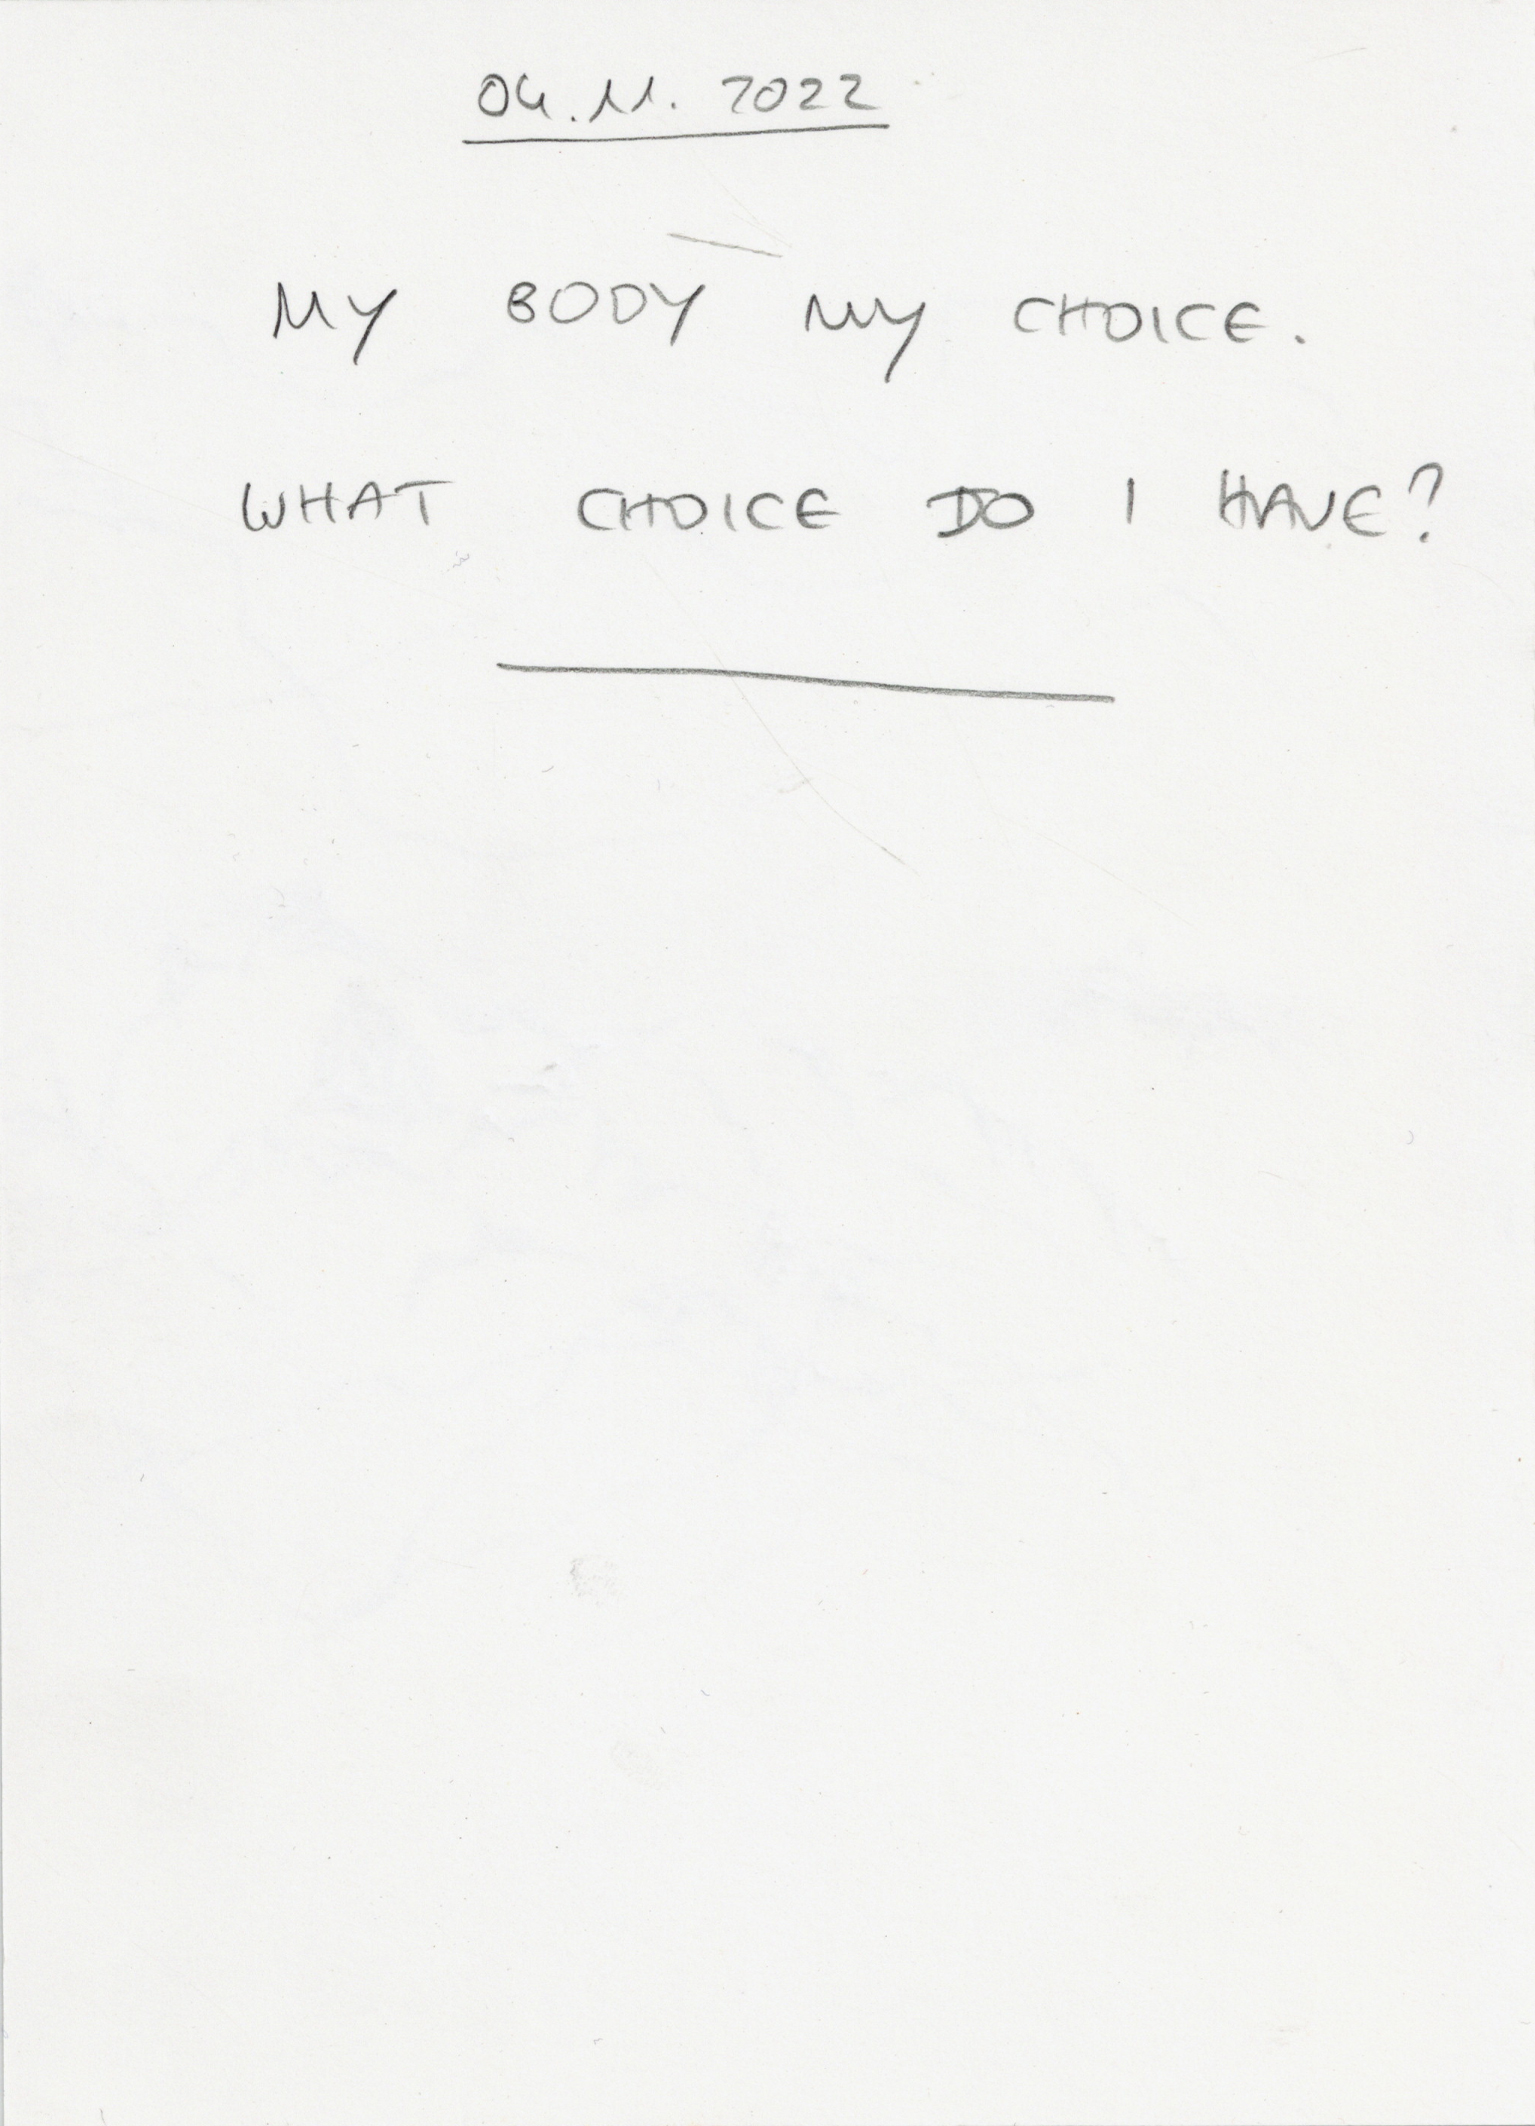 04.11.2022
MY BODY MY CHOICE.
WHAT CHOICE DO I HAVE?